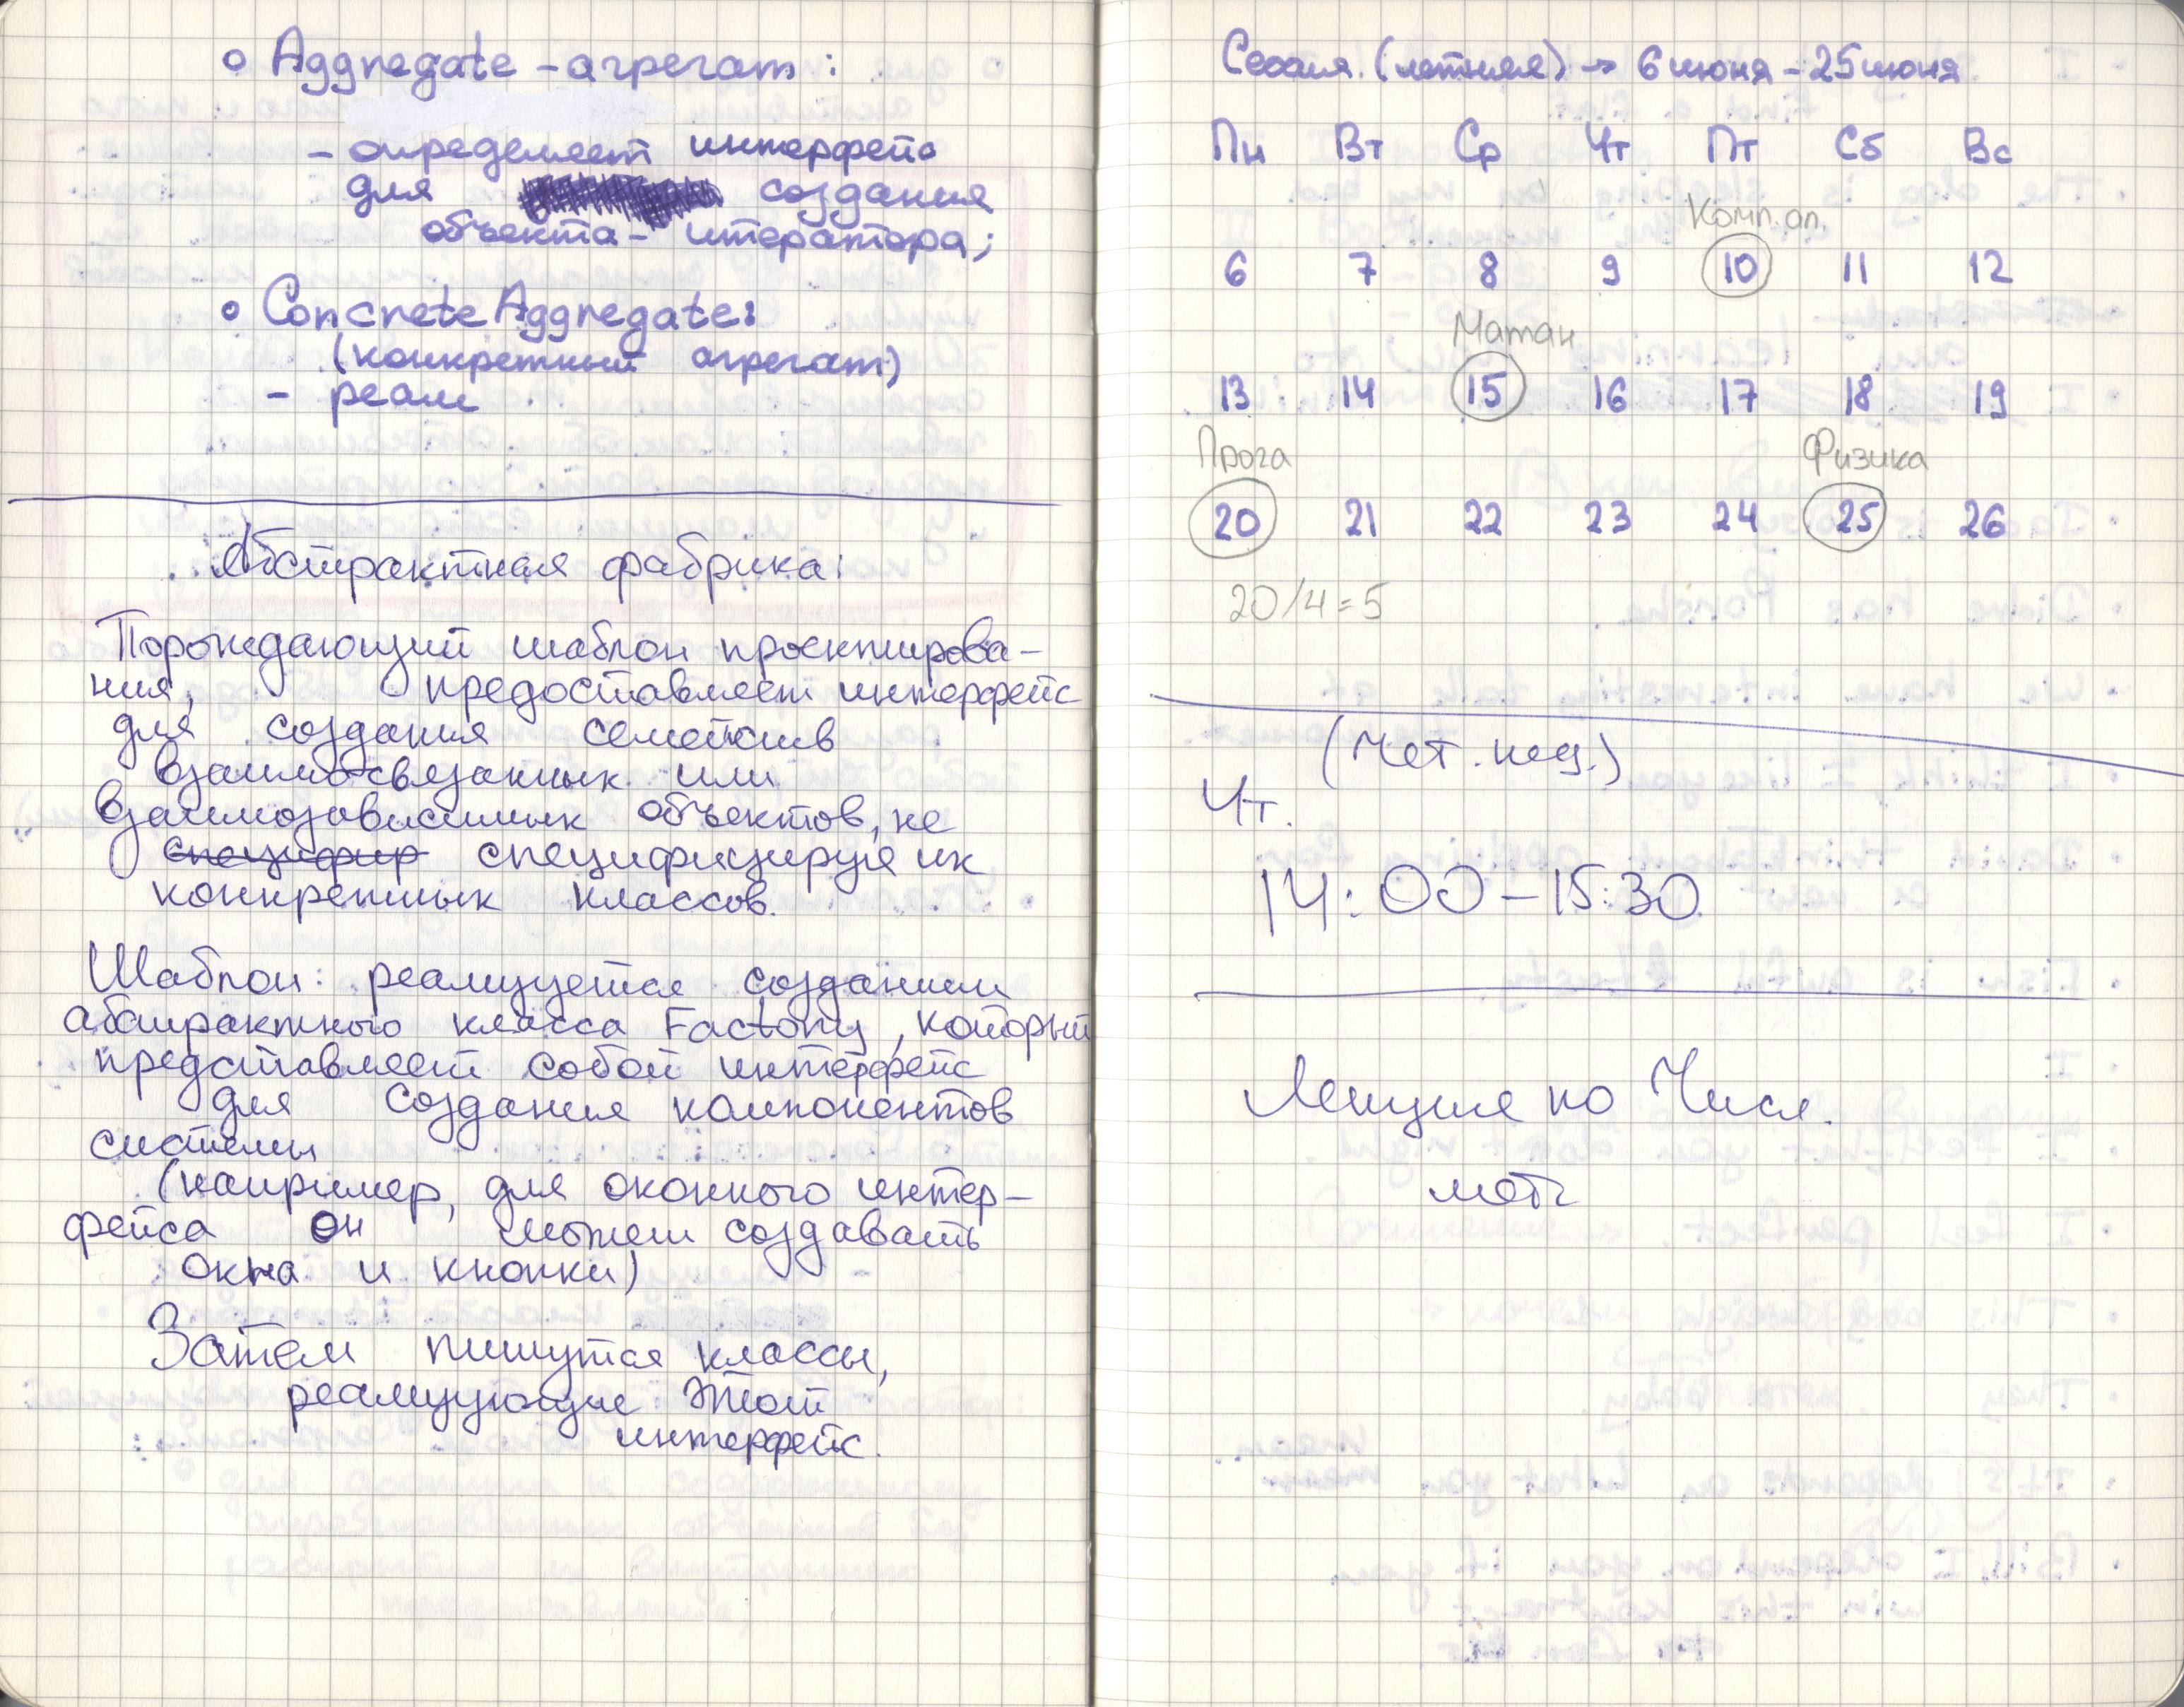 o Aggregate - агрегат:
- определяет интерфейс
для создания
объекта - итератора;
o Concrete Aggregate:
(конкретный агрегат)
- реали
Абстрактная фабрика:
Порождающий шаблон проектирова-
ния, предоставляет интерфейс
для создания семейств
взаимосвязанных или
взаимозависимых объектов, не
специфир специфицируя их
конкретных классов.
Шаблон: реализуется созданием
абстрактного класса Factory, который
представляет собой интерфейс
для создания компонентов
системы
(например, для оконного интер-
фейса он может создавать
окна и кнопки)
Затем пишутся классы,
реализующие этот
интерфейс.
Сессия (летняя) → 6 июня - 25 июня
Пн Вт Ср Чт Пт Сб Вс
Комп. ап.
6 7 8 9 10 11 12
Матан
13 14 15 16 17 18 19
Прога Физика
20 21 22 23 24 25 26
20/4=5
(чет. нед.)
Чт.
14:00 - 15:30
Лекция по Числ.
мет